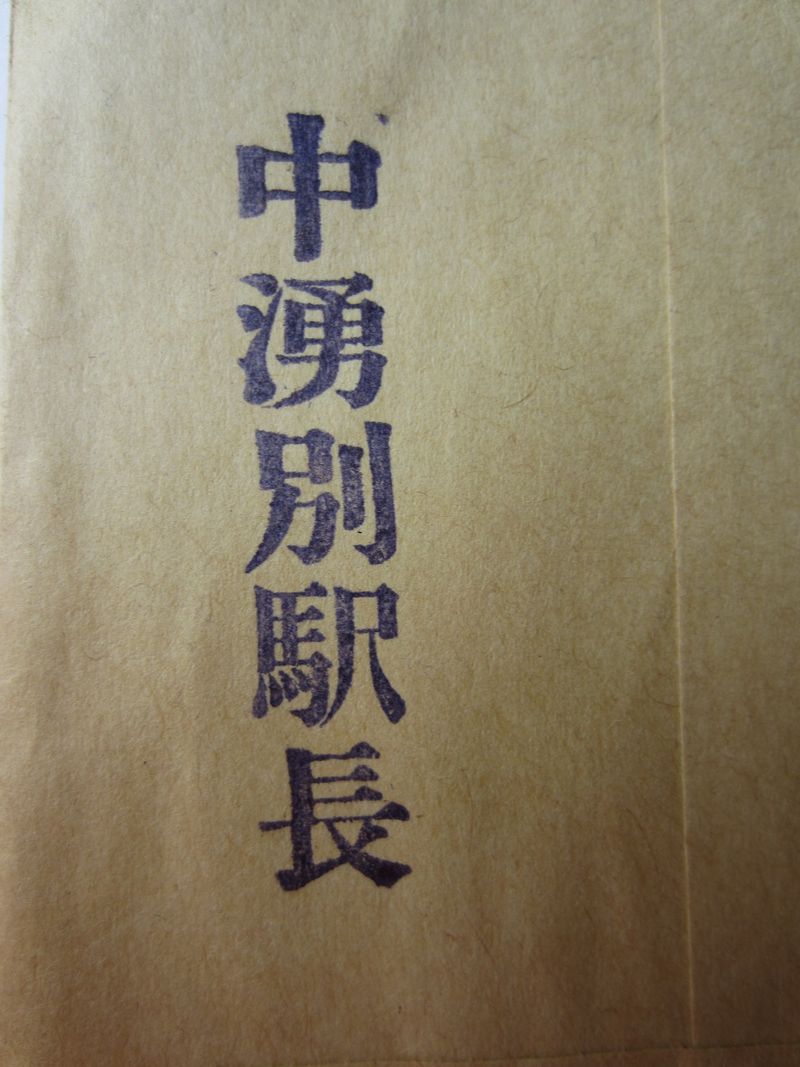 中湧別駅長